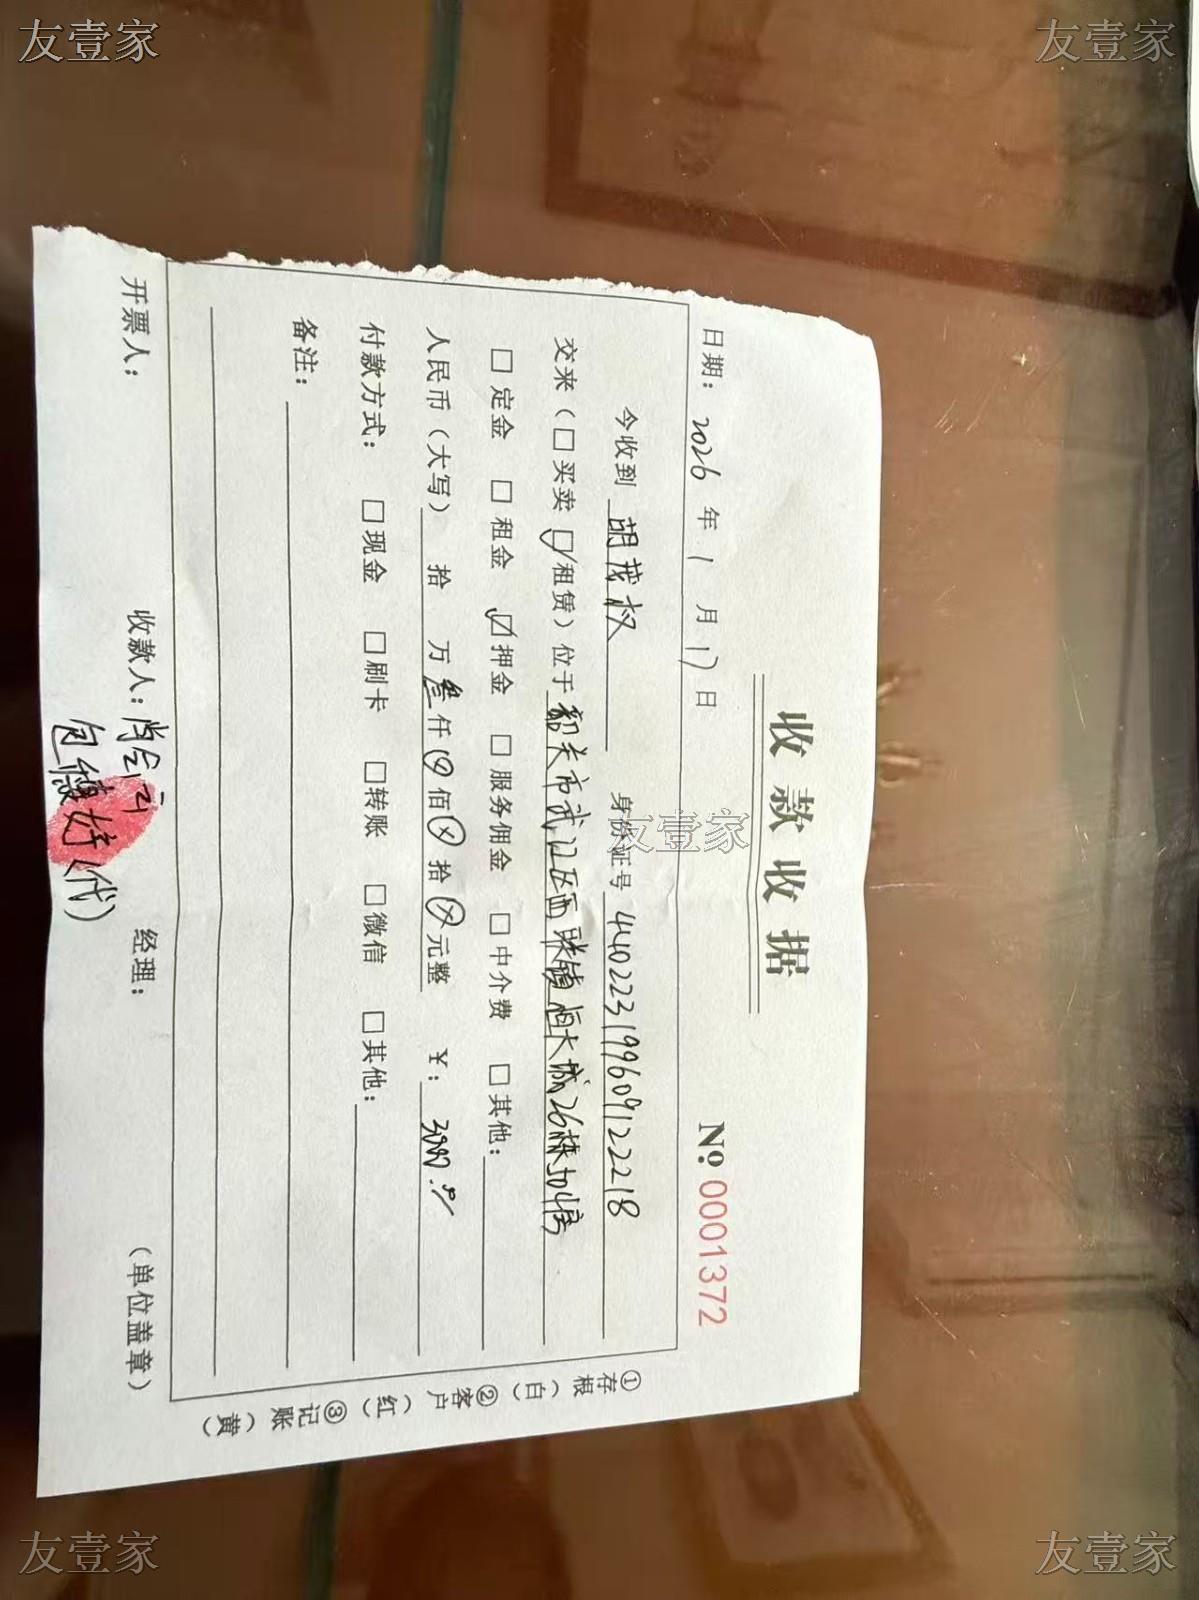 友壹家
友壹家
收款收据
No. 0001372
日期：2026年1月17日
今收到 胡茂权 身份证号 440223199609122218
交来（□买卖 ☑租赁）位于韶关市武江区西联镇恒大城26栋504房
□定金 □租金 ☑押金 □服务佣金 □中介费 □其他：
人民币（大写） 拾 万叁仟⊗佰⊗拾⊗元整 ¥：3000.00
付款方式： □现金 □刷卡 □转账 □微信 □其他：
备注：
开票人： 收款人： 经理： （单位盖章）
（代）
①存根（白）②客户（红）③记账（黄）
友壹家
友壹家
友壹家